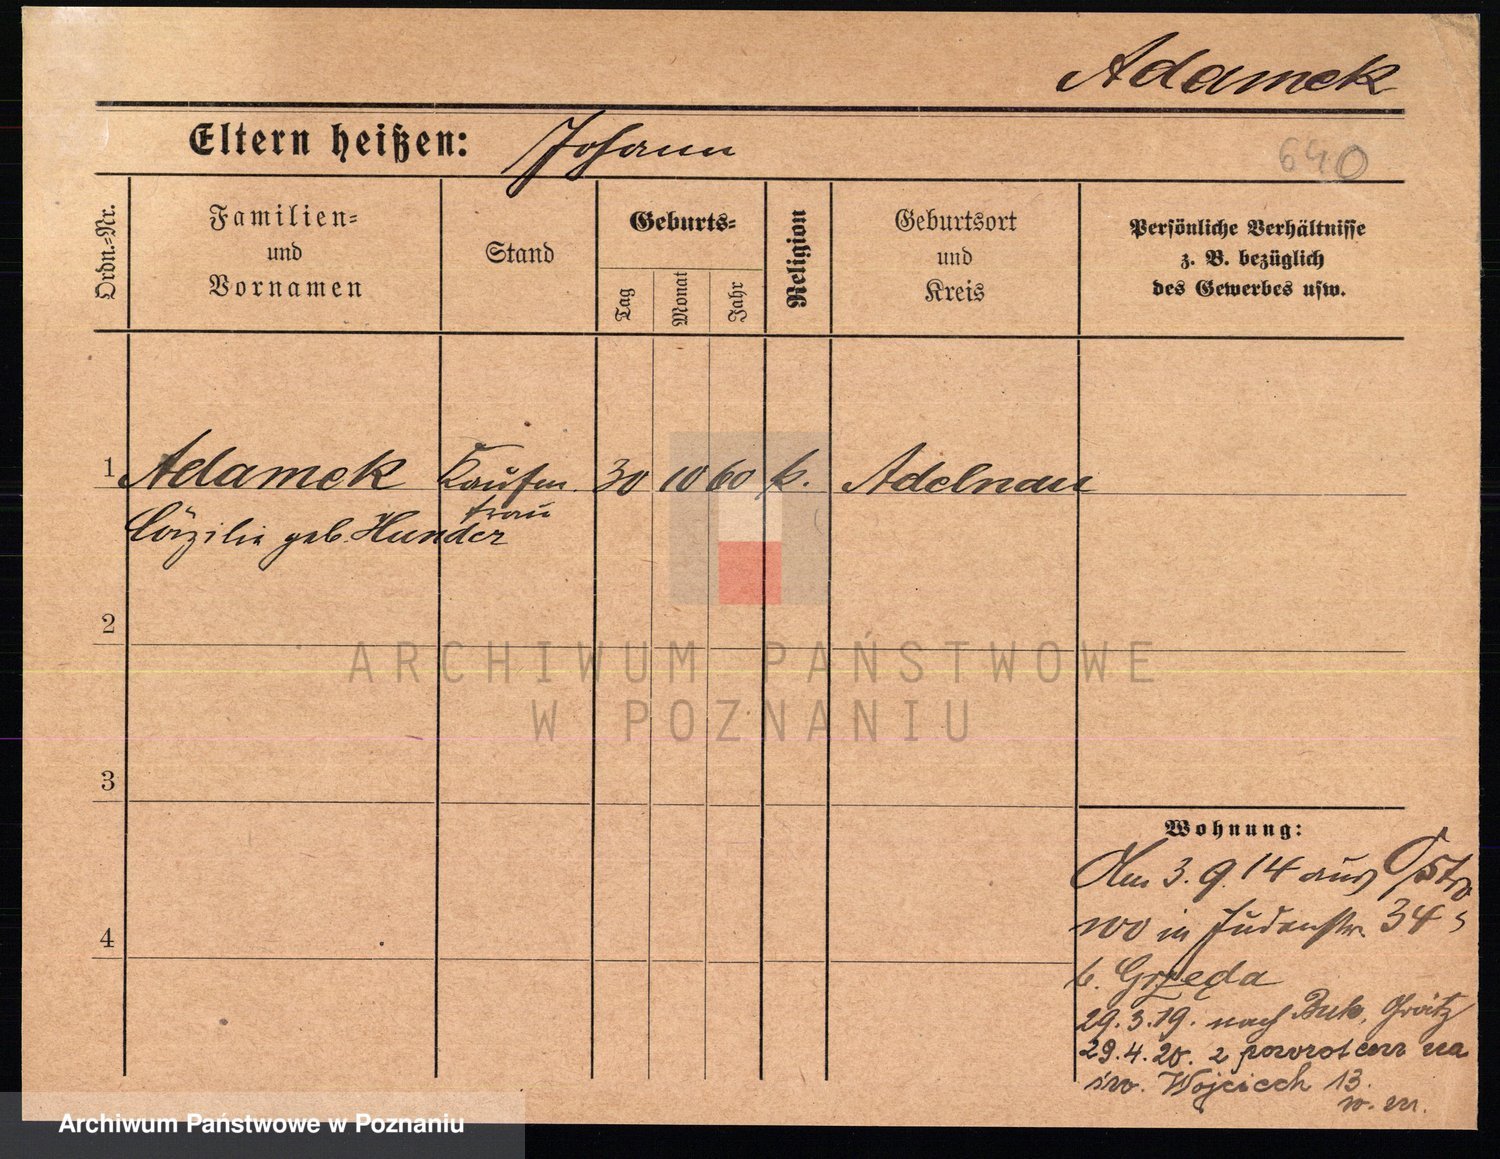 Adamek
Eltern heißen: Johann
640
Ordn.-Nr.
Familien-
und
Vornamen
Stand
Geburts-
Tag
Monat
Jahr
Religion
Geburtsort
und
Kreis
Persönliche Verhältnisse
z. B. bezüglich
des Gewerbes usw.
1 Adamek Kaufm. 30 10 60 k. Adelnau
frau
Cäzilie geb. Hunder
2
3
4
Wohnung:
Am 3.9.14 aus Ostro
wo in Judenstr. 34
b. Grzęda
29.3.19. nach Buk, Grätz
29.4.20. z powrotem na
św. Wojciech 13.
ARCHIWUM PAŃSTWOWE
W POZNANIU
Archiwum Państwowe w Poznaniu